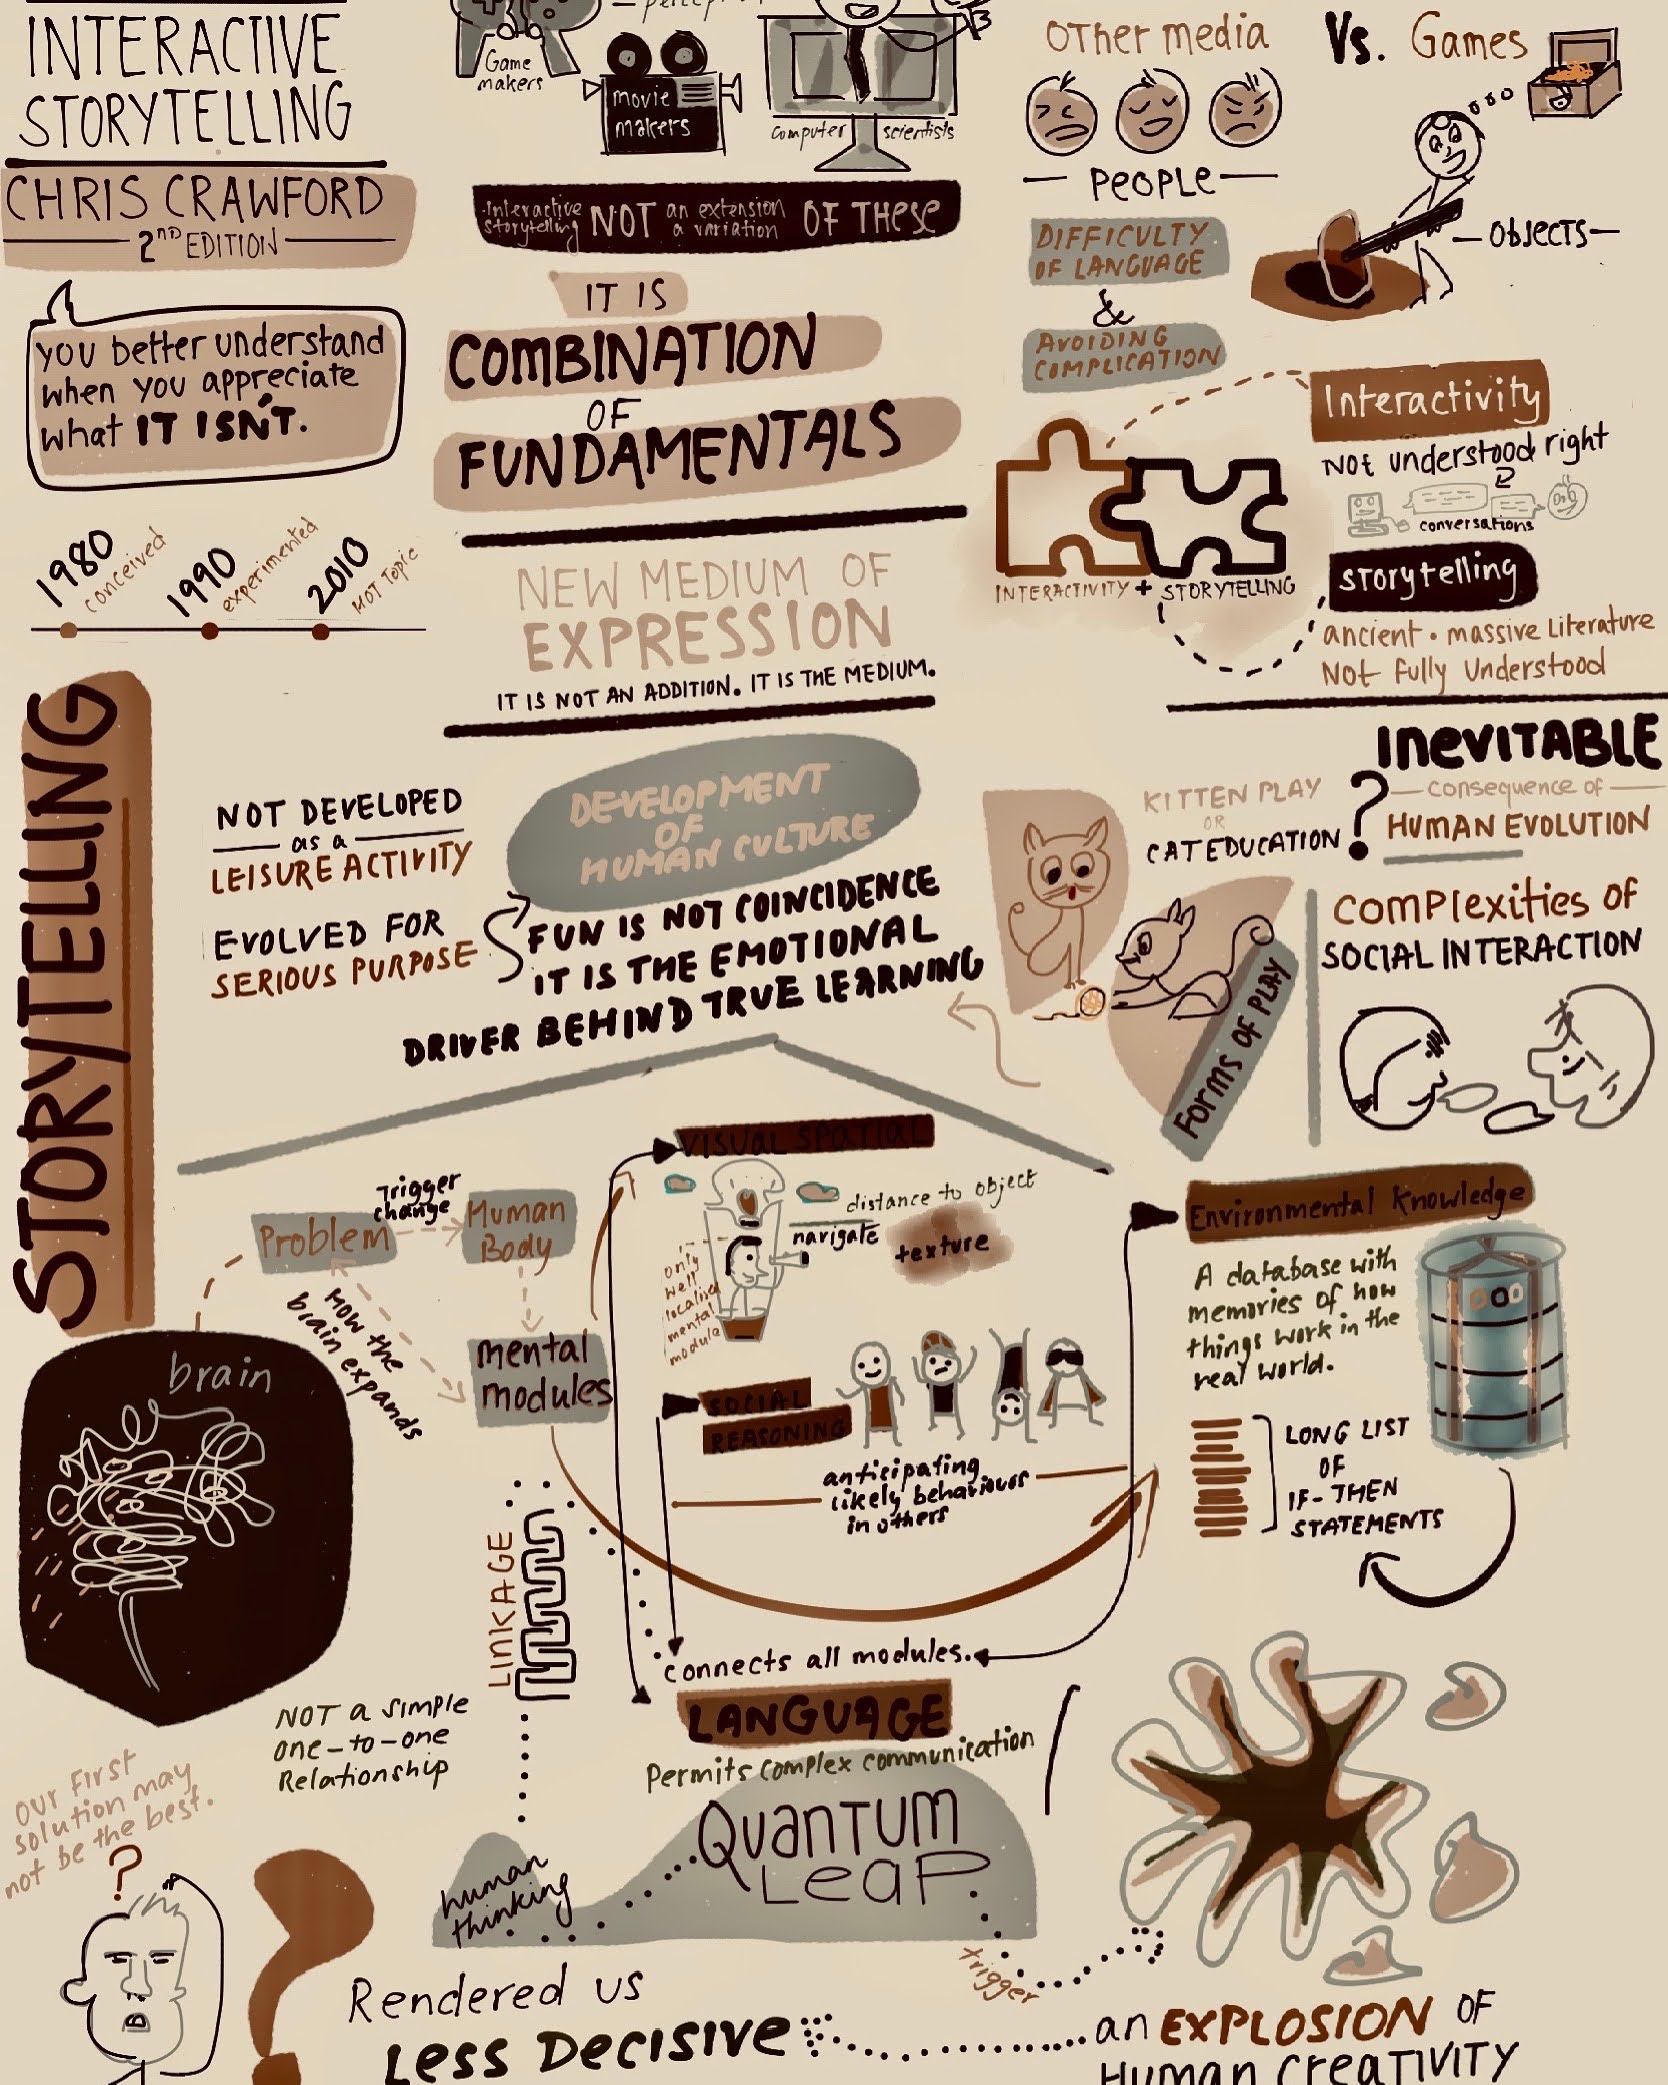 INTERACTIVE
STORYTELLING
CHRIS CRAWFORD
2ND EDITION
you better understand
when you appreciate
what IT ISN'T.
1980
conceived
1990
experimented
2010
HOT Topic
Game
makers
movie
makers
computer scientists
Interactive
storytelling
NOT
an extension
a variation
OF THESE
IT IS
COMBINATION
OF
FUNDAMENTALS
NEW MEDIUM OF
EXPRESSION
IT IS NOT AN ADDITION. IT IS THE MEDIUM.
Other media
Vs. Games
PEOPLE
OBJECTS
DIFFICULTY
OF LANGUAGE
&
AVOIDING
COMPLICATION
INTERACTIVITY + STORYTELLING
Interactivity
Not understood right
conversations
storytelling
ancient • massive Literature
Not fully Understood
STORYTELLING
NOT DEVELOPED
as a
LEISURE ACTIVITY
EVOLVED FOR
SERIOUS PURPOSE
DEVELOPMENT
OF
HUMAN CULTURE
FUN IS NOT COINCIDENCE
IT IS THE EMOTIONAL
DRIVER BEHIND TRUE LEARNING
KITTEN PLAY
OR
CAT EDUCATION
?
Forms OF PLAY
INEVITABLE
consequence of
HUMAN EVOLUTION
COMPLEXITIES OF
SOCIAL INTERACTION
Problem
Trigger
change
Human
Body
How the
brain expands
mental
modules
brain
VISUAL SPATIAL
distance to object
navigate
texture
only
well
localised
mental
module
SOCIAL
REASONING
anticipating
likely behaviours
in others
Environmental Knowledge
A database with
memories of how
things work in the
real world.
LONG LIST
OF
IF-THEN
STATEMENTS
LINKAGE
NOT a simple
one-to-one
Relationship
connects all modules.
LANGUAGE
Permits complex communication
QUANTUM
LEAP
human
thinking
trigger
our first
solution may
not be the best.
?
Rendered us
Less Decisive
an EXPLOSION OF
HUMAN CREATIVITY